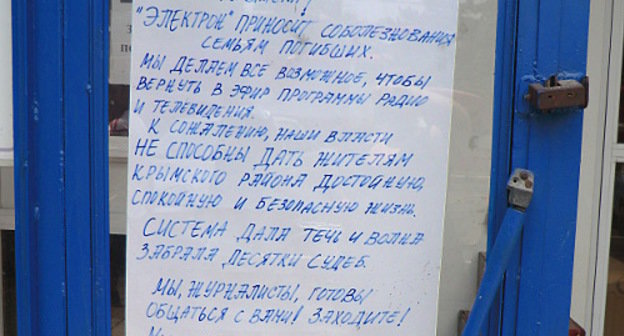 "ЭЛЕКТРОН" ПРИНОСИТ СОБОЛЕЗНОВАНИЯ
СЕМЬЯМ ПОГИБШИХ.
МЫ ДЕЛАЕМ ВСЁ ВОЗМОЖНОЕ, ЧТОБЫ
ВЕРНУТЬ В ЭФИР ПРОГРАММЫ РАДИО
И ТЕЛЕВИДЕНИЯ.
К СОЖАЛЕНИЮ, НАШИ ВЛАСТИ
НЕ СПОСОБНЫ ДАТЬ ЖИТЕЛЯМ
КРЫМСКОГО РАЙОНА ДОСТОЙНУЮ,
СПОКОЙНУЮ И БЕЗОПАСНУЮ ЖИЗНЬ.
СИСТЕМА ДАЛА ТЕЧЬ И ВОЛНА
ЗАБРАЛА ДЕСЯТКИ СУДЕБ.
МЫ, ЖУРНАЛИСТЫ, ГОТОВЫ
ОБЩАТЬСЯ С ВАМИ! ЗАХОДИТЕ!